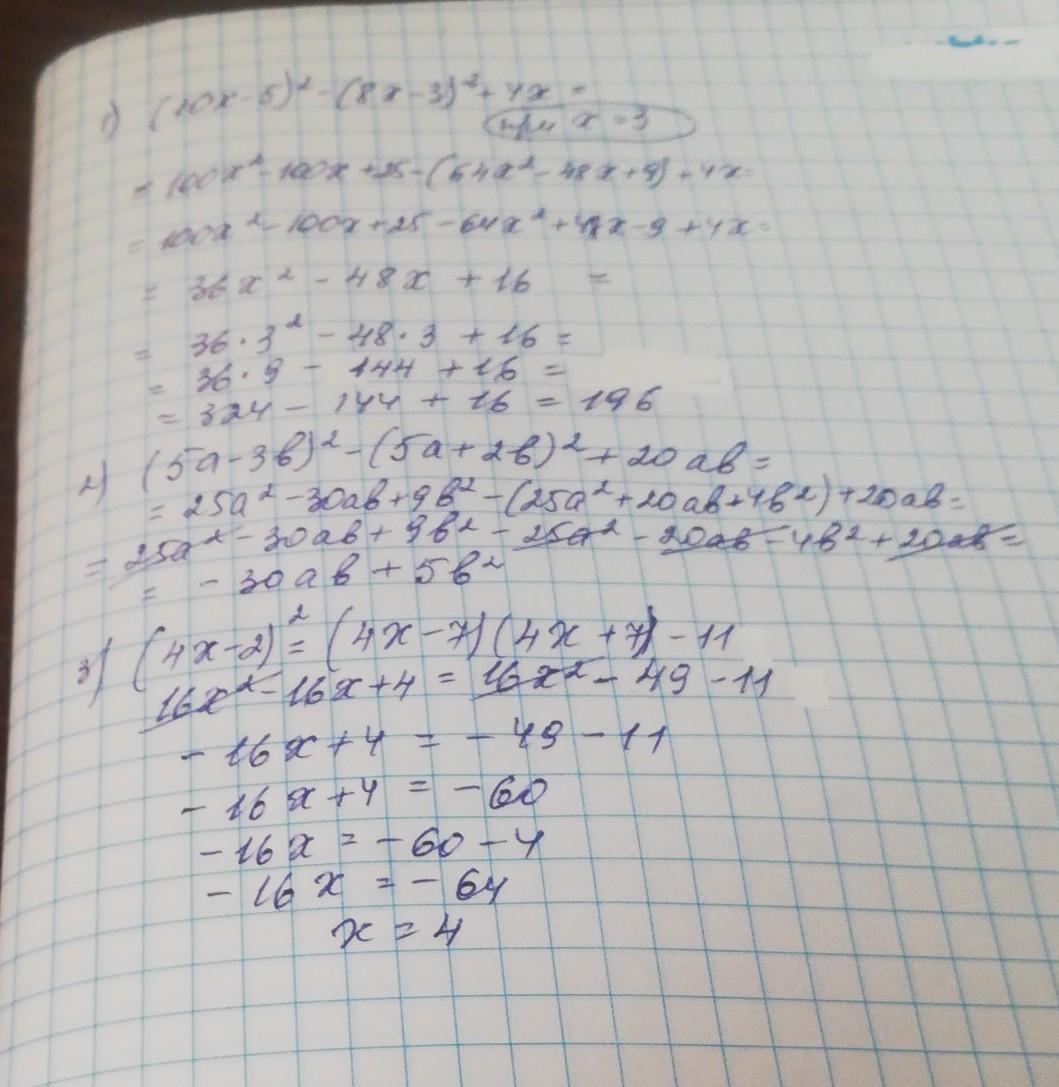 1) (10x-5)² - (8x-3)² + 4x =
при x = 3
= 100x² - 100x + 25 - (64x² - 48x + 9) + 4x =
= 100x² - 100x + 25 - 64x² + 48x - 9 + 4x =
= 36x² - 48x + 16 =
= 36·3² - 48·3 + 16 =
= 36·9 - 144 + 16 =
= 324 - 144 + 16 = 196
2) (5a-3b)² - (5a+2b)² + 20ab =
= 25a² - 30ab + 9b² - (25a² + 20ab + 4b²) + 20ab =
= 25a² - 30ab + 9b² - 25a² - 20ab - 4b² + 20ab =
= - 30ab + 5b²
3) (4x-2)² = (4x-7)(4x+7) - 11
16x² - 16x + 4 = 16x² - 49 - 11
- 16x + 4 = - 49 - 11
- 16x + 4 = - 60
- 16x = - 60 - 4
- 16x = - 64
x = 4